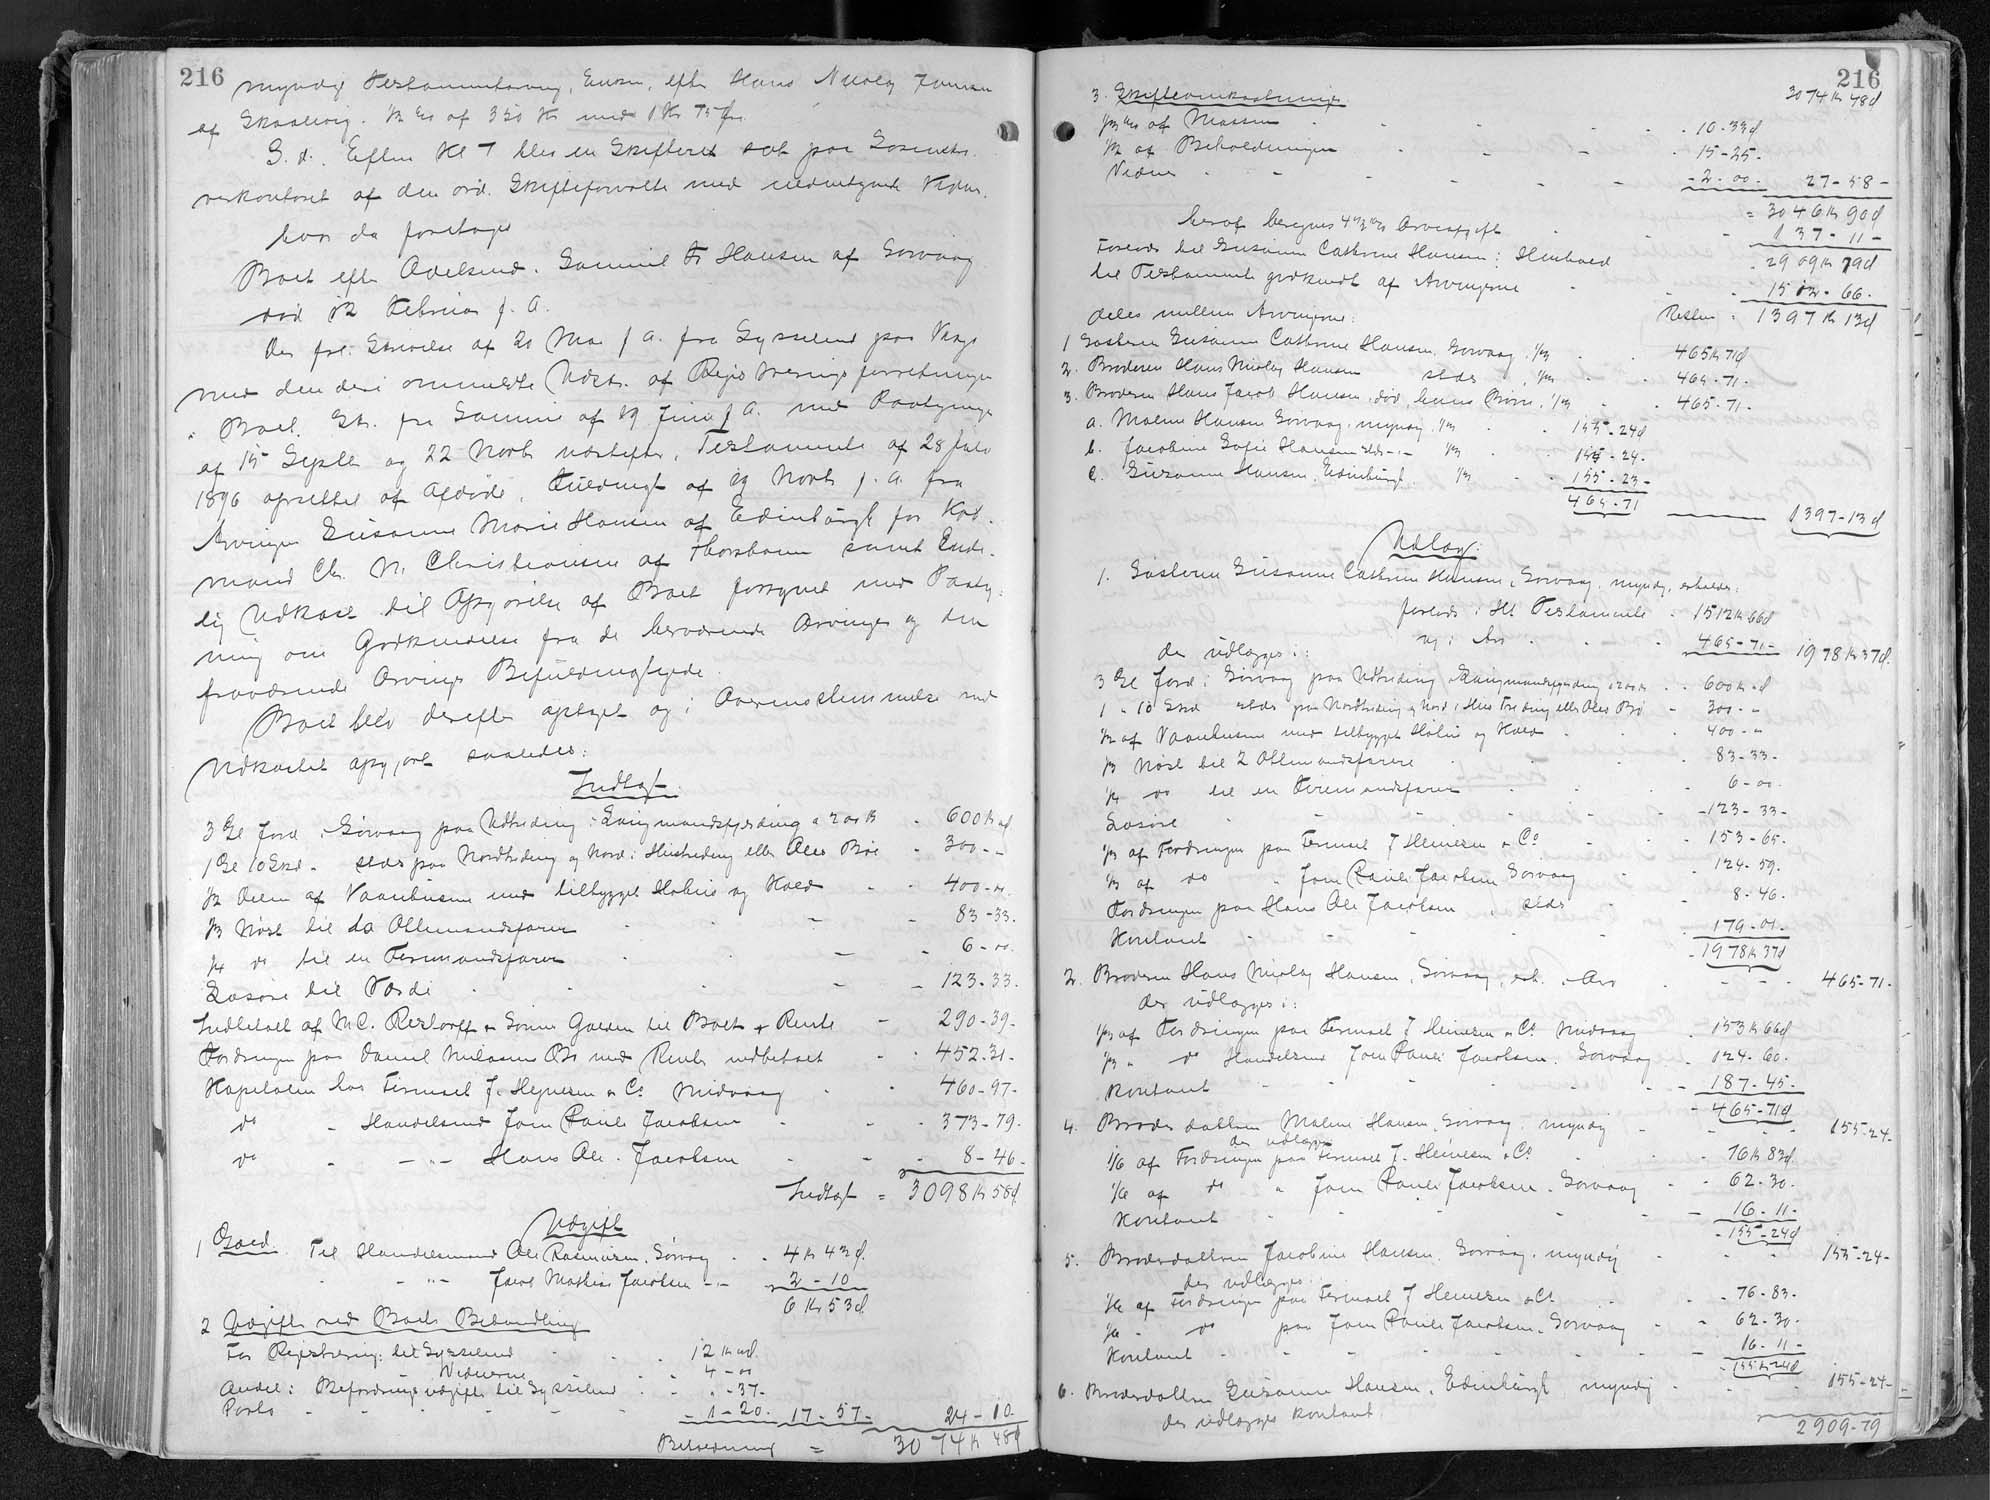 216
myndig Testamentarving, Enken, efter Hans Nicolaj Jensen
af Skaalevig. ½ % af 350 Kr med 1 Kr 75 Øre
S. d. Efterm Kl 7 blev en Skifteret sat paa Sorenskri-
verkontoret af den ord. Skifteforvalter med medunderskr. Vidner
hvor da foretoges
Boet efter Aftds Samuel Fr Hansen af Sørvaag
død 12 Februar f. A.
Der frl. Skrivelse af 20 Mai f A. fra Sysselmd paa Vaagø
med den deri ommeldte Udskr. af Registreringsforretningen
i Boet. Skr. fra Samme af 19 Juni f A. med Paategninger
af 15 Septbr og 22 Novbr næstefter, Testamente af 28 Juli
1896 oprettet af Afdøde, Fuldmagt af 19 Novbr f. A. fra
Arvingen Susanne Marie Hansen af Edinburgh for Køb-
mand Chr. M. Christiansen af Thorshavn samt Ende-
lig Udkast til Opgjørelse af Boet forsynet med Paateg-
ning om Godkendelse fra de herværende Arvinger og den
fraværende Arvings Befuldmægtigede.
Boet blev derefter optaget og i Overensstemmelse med
Udkastet opgjort saaledes:
Indtægt
3 Gl Jord i Sørvaag paa Udtriding i Laugmandsfjerding a 200 Kr - 600 Kr øl
1 Gl 10 Skd - stds paa Nordtriding og Nord i Hustriding eller Oles Bøe - 300 - -
½ Delen af Vaanhusene med tilbygget Hshus og Hoved - - 400 - 00.
⅓ Nøst til do Ottemandsfarer - - - 83 - 33.
¼ do til en Firemandsfarer - - 6 - 00.
Løsøre til Værdi - - - 123 - 33.
Indbetalt af M.C. Restorff & Sønner Gaven til Boet & Rente - 290 - 39.
Fordringen paa Daniel Nielsens Bo med Rente indbetalt - - 452 - 31.
Kapitalen hos Firmaet J. Heinesen & Co Midvaag - - 460 - 97.
do - Handelsmd Joen Pauli Jacobsen - - 373 - 79.
do - - " - Hans Ole Jacobsen - - 8 - 46.
Indtægt = 3098 Kr 58 Ø
Udgift
1 Gæld. Til Handelsmand Ole Rasmussen, Sørvaag - - 4 Kr 43 Ø.
- - " - Jacob Mathias Jacobsen - " - 2 - 10
6 Kr 53 Ø.
2 Udgifter ved Boets Behandling
For Registrering: til Sysselmd - - 12 Kr 00 Ø.
Vidnerne - - 4 - 00
Andel i Befordringsudgifter til Sysselmd - - " - 37 -
Porto - - - - 1 - 20. 17 - 57 - 24 - 10
Beholdning = 3074 Kr 48 Ø
216
3. Skifteomkostninger 3074 Kr 48 Ø
⅓ % af Massen - - - 10 - 33 Ø
½ af Beholdningen - - - 15 - 25 -
Vidner - - - - 2 - 00 - 27 - 58 -
= 3046 Kr 90 Ø
heraf beregnes 4½ % Arveafgift - - 137 - 11 -
- 2909 Kr 79 Ø
Forlods til Susanne Cathrine Hansen i Henhold
til Testamente godkendt af Arvingerne - - 1512 - 66.
Resten = 1397 Kr 13 Ø
deles mellem Arvingerne:
1 Søsteren Susanne Cathrine Hansen, Sørvaag, ⅓ - - 465 Kr 71 Ø
2. Broderen Hans Nicolaj Hansen stds , ⅓ - - 465 - 71 -
3. Broderen Hans Jacob Hansen, død, hans Børn, ⅓ - - 465 - 71 -
a. Malene Hansen Sørvaag, myndig, ⅓ - - 155 - 24 Ø
b. Jacobine Sofie Hansen stds - " - ⅓ - - 155 - 24 -
c. Susanne Hansen, Edinburgh. ⅓ - - 155 - 23 -
465 - 71 1397 - 13 Ø
Udlæg:
1. Søsteren Susanne Cathrine Hansen, Sørvaag, myndig, erholder:
forlods i Hl Testamente - 1512 Kr 66 Ø
og i Arv - - 465 - 71 - 1978 Kr 37 Ø.
der udlægges i:
3 Gl Jord i Sørvaag paa Udtriding i Laugmandsfjerding a 200 Kr - - 600 Kr - Ø
1 - 10 Skd stds paa Nordtriding og Nord i Hus Triding eller Oles Bø - 300 - "
½ af Vaanhusene med tilbygget Hshus og Hoved - - 400 - "
⅓ Nøst til 2 Ottemandsfarere - - 83 - 33 -
¼ do til en Firemandsfarer - - 6 - 00.
Løsøre - - - 123 - 33 -
⅓ af Fordringen paa Firmaet J Heinesen & Co - - 153 - 65.
⅓ af do " Joen Pauli Jacobsen Sørvaag - - 124 - 59.
Fordringen paa Hans Ole Jacobsen, stds - - 8 - 46.
Kontant - - - 179 - 01.
1978 Kr 37 Ø
2. Broderen Hans Nicolaj Hansen, Sørvaag, erh. i Arv - - - 465 - 71 -
der udlægges i:
⅓ af Fordringen paa Firmaet J Heinesen & Co Midvaag - 153 Kr 66 Ø
⅓ " do Handelsmd Joen Pauli Jacobsen, Sørvaag - 124 - 60.
Kontant - - - - 187 - 45 -
- 465 - 71 Ø
4. Broderdatteren Malene Hansen, Sørvaag, myndig - - - 155 - 24 -
der udlægges
1/6 af Fordringen paa Firmaet J. Heinesen & Co - - 76 Kr 83 Ø.
1/6 af do " Joen Pauli Jacobsen. Sørvaag - - 62 - 30.
Kontant - - - - 16 - 11 -
- 155 - 24 Ø
5. Broderdatteren Jacobine Hansen, Sørvaag, myndig - - - 155 - 24 -
der udlægges
1/6 af Fordringen paa Firmaet J Heinesen & Co. - - 76 - 83 -
1/6 - do paa Joen Pauli Jacobsen, Sørvaag - - 62 - 30 -
Kontant - - - - 16 - 11 -
- 155 Kr 24 Ø
6. Broderdatteren Susanne Hansen, Edinburgh myndig - - - 155 - 24 -
der udlægges kontant.
2909 - 79